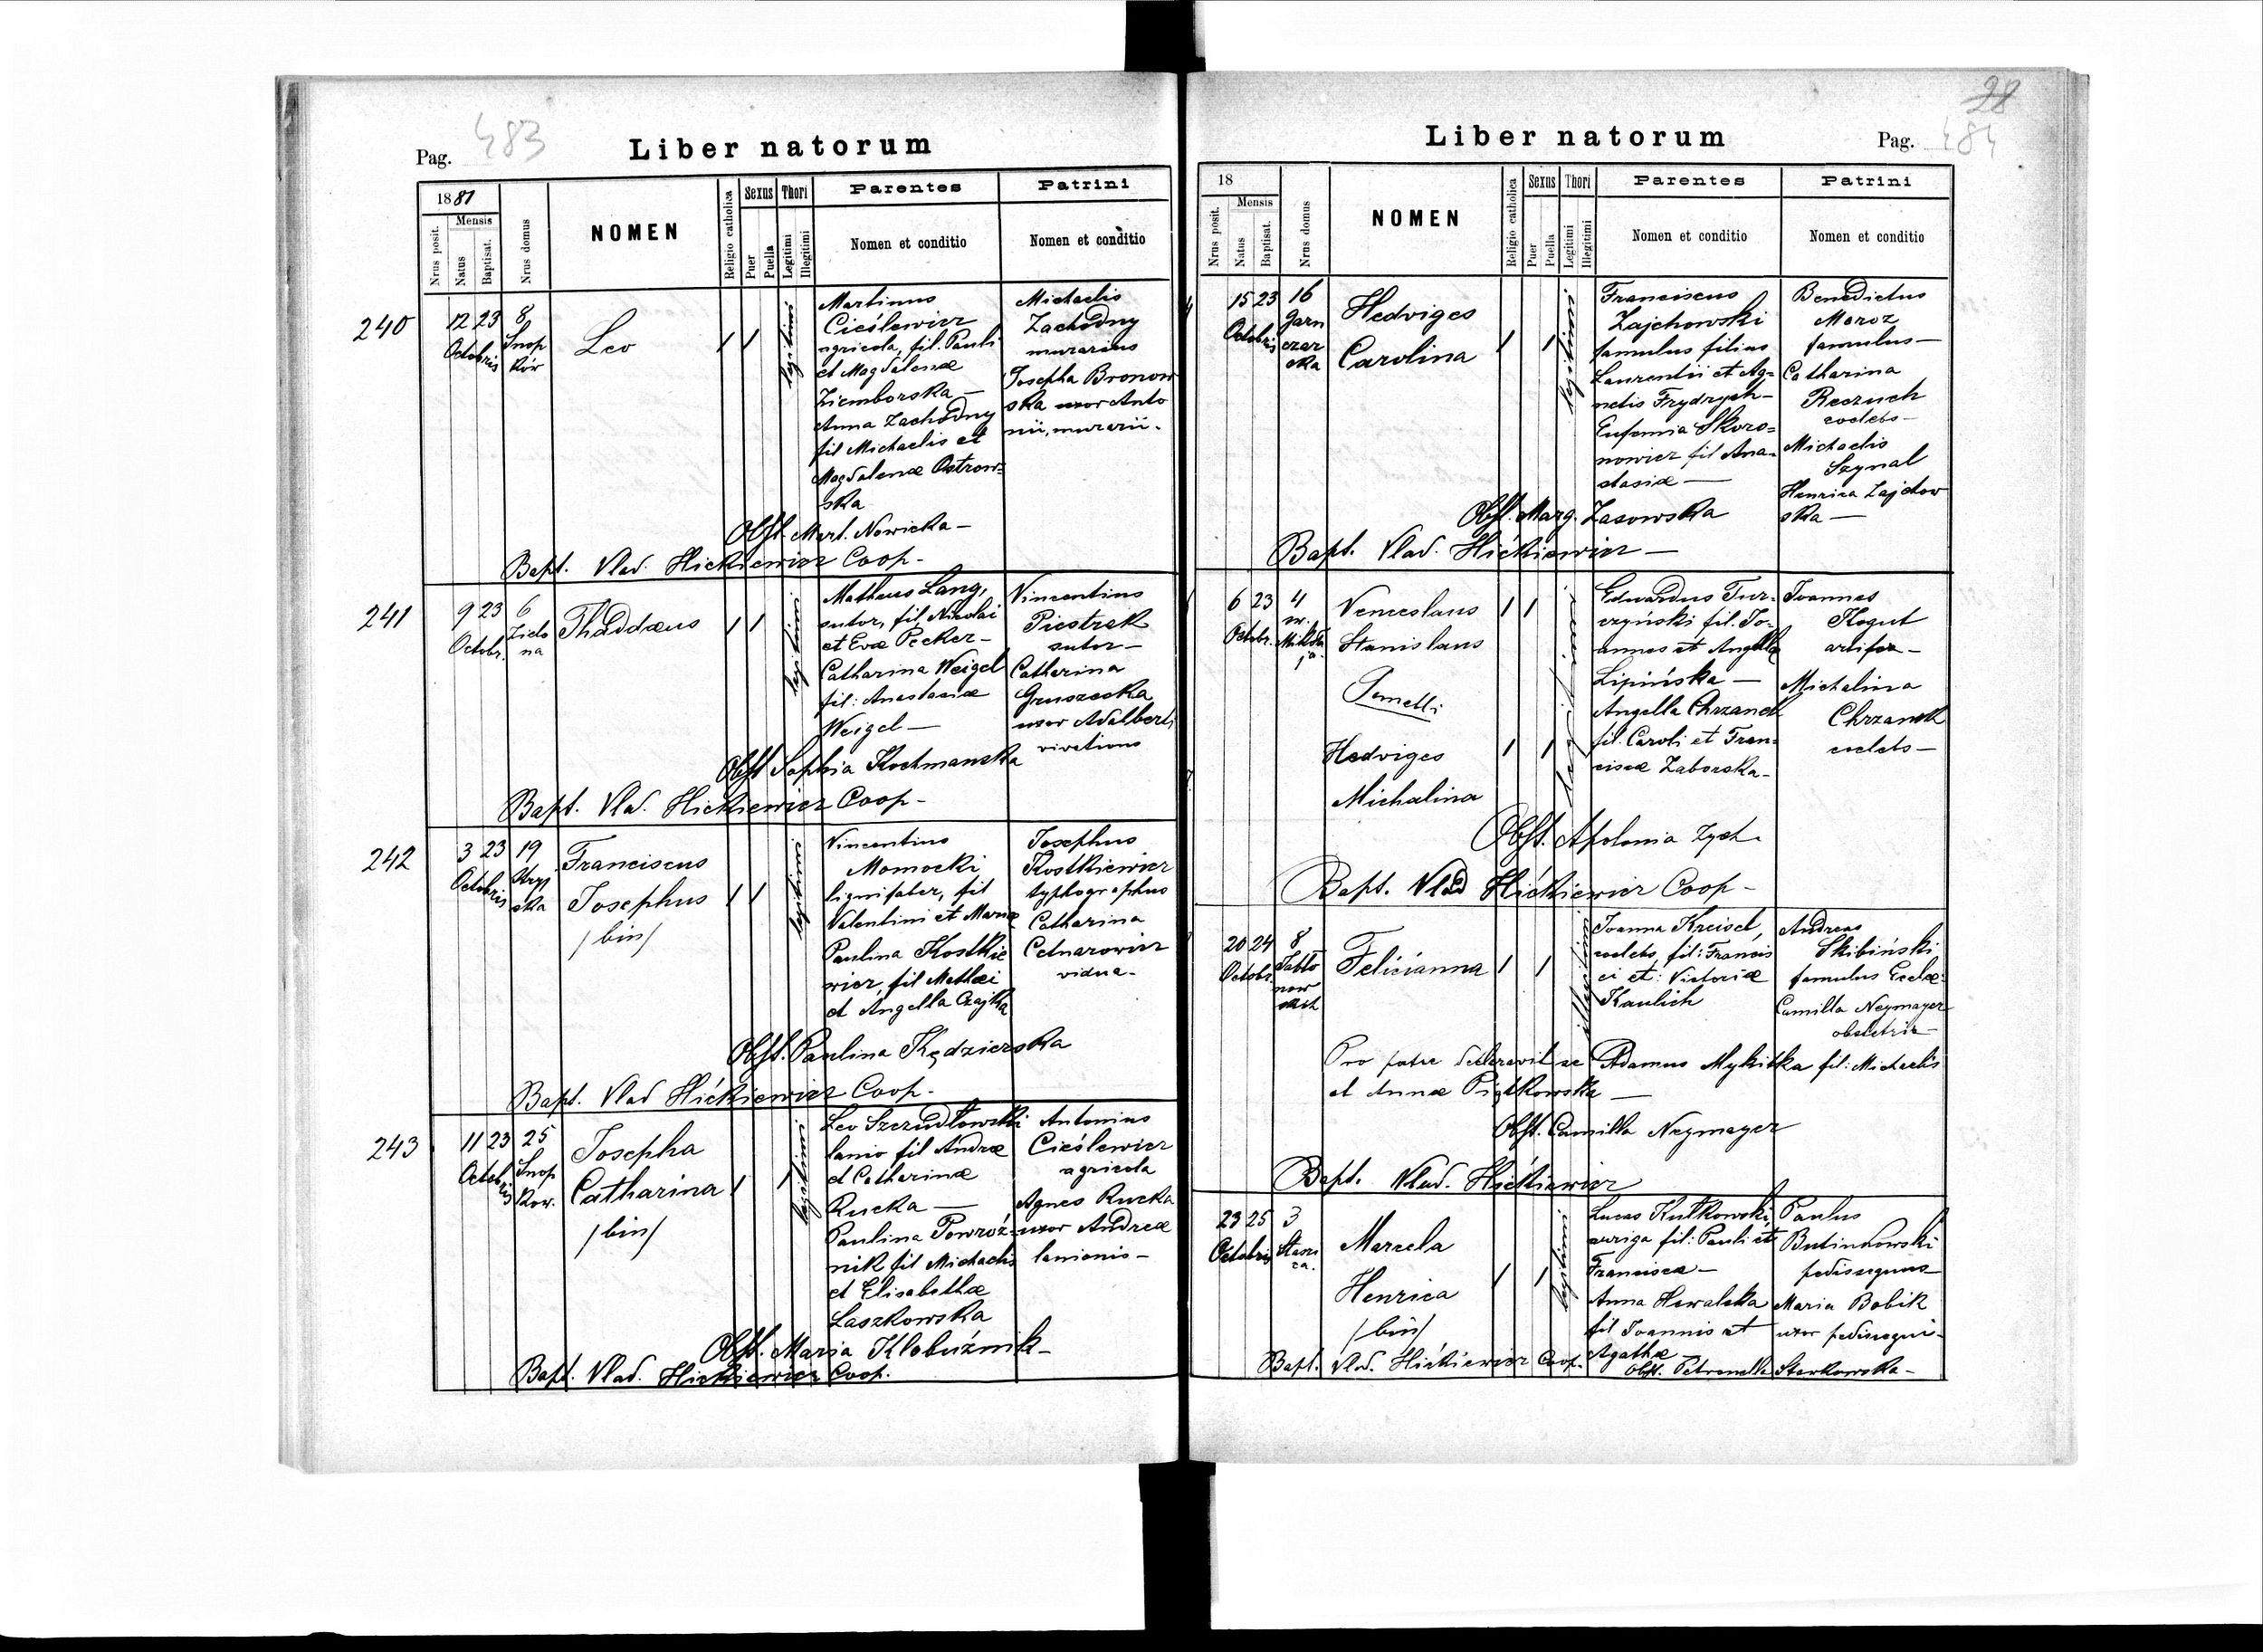 483
Pag.
Liber natorum
1881
Nrus posit.
Mensis
Natus
Baptisat.
Nrus domus
NOMEN
Religio catholica
Sexus
Puer
Puella
Thori
Legitimi
Illegitimi
Parentes
Nomen et conditio
Patrini
Nomen et conditio
240
12 23
Octobris
8
Snop
ków
Leo
legitimi
Martinus
Cieślewicz
agricola, fil. Pauli
et Magdalenæ
Ziemborska —
Anna Zachodny
fil Michaelis et
Magdalenæ Ostrow=
ska
Michaelis
Zachodny
murarius
Josepha Bronow
ska uxor Anto
nii, murarii.
Obst. Mart. Nowicka —
Bapt. Vlad. Hićkiewicz Coop —
241
9 23
Octobr.
6
Zielo
na
Thaddæus
legitimi
Matheus Lang,
sutor, fil, Nikolai
et Evæ Pecker —
Catharina Weigel
fil: Anastasiæ
Weigel —
Vincentius
Piestrak
sutor —
Catharina
Gruszecka
uxor Adalberti
Obst Sophia Kochmanska
Bapt. Vlad. Hićkiewicz Coop —
242
3 23
Octobris
19
Stryj
ska
Franciscus
Josephus
/bin/
legitimi
Vincentius
Momocki
lignifaber, fil
Valentini et Mariæ
Paulina Kostkie
wicz, fil Mathæi
et Angella Czajka
Josephus
Kostkiewicz
typhographus
Catharina
Cetnarowicz
vidua —
Obst. Paulina Kędzierska
Bapt. Vlad Hićkiewicz Coop —
243
11 23
Octobris
25
Snop
kow.
Josepha
Catharina
/bin/
legitimi
Leo Szczudłowski
lanio fil Andræ
et Catharinæ
Rucka —
Paulina Powroź=
nik fil Michaelis
et Elisabethæ
Laszkowska
Antonius
Cieślewicz
agricola
Agnes Rucka
uxor Andreæ
lanionis —
Obst. Maria Klobuźnik —
Bapt. Vlad. Hićkiewicz Coop.
28
Liber natorum
Pag. 484
18
Nrus posit.
Mensis
Natus
Baptisat.
Nrus domus
NOMEN
Religio catholica
Sexus
Puer
Puella
Thori
Legitimi
Illegitimi
Parentes
Nomen et conditio
Patrini
Nomen et conditio
15 23
Octobris
16
Garn
czar
ska
Hedviges
Carolina
legitimi
Franciscus
Zajchowski
famulus filius
Laurentii et Ag=
netis Frydrych —
Eufemia Skoro=
nowicz fil Ana=
stasiæ —
Benedictus
Moroz
famulus —
Catharina
Reczuch
coelebs —
Michaelis
Szynal
Henrica Zajchow
ska —
Obst. Marg. Zasowska
Bapt. Vlad. Hićkiewicz —
6 23
Octobr.
4
sw.
Mikoła
ja.
Venceslaus
Stanislaus
Gemelli
Hedviges
Michalina
Eduardus Tur=
czyński fil. Jo=
annes et Angella
Lipińska —
Angella Chrzanek
fil. Caroli et Fran=
ciscæ Zaborska —
Joannes
Kogut
artifex —
Michalina
Chrzanek
coelebs —
Obst. Apolonia Zych.
Bapt. Vlad Hićkiewicz Coop —
20 24
Octobr.
8
Jabło
now
skich
Feliciannа
illegitimi
Joanna Kreisel,
coelebs, fil: Francis
ci et: Victoriæ
Kaulich
Andreas
Skibiński
famulus Eccle:
Camilla Neymayer
obstetrix —
Pro patre declaravit se Adamus Mykitka fil: Michaelis
et Annæ Piątkowska —
Obst. Camilla Neymayer
Bapt. Vlad. Hićkiewicz
23 25
Octobris
3
Marcela
Henrica
/bin/
legitimi
Lucas Kutkowski,
auriga fil: Pauli et
Francisca —
Anna Howalska
fil Joannis et
Agathæ
Paulus
pedissequus
Maria Bobik
uxor pedissequi —
Obst. Petronella Starkowska —
Bapt. Vlad. Hićkiewicz Coop.